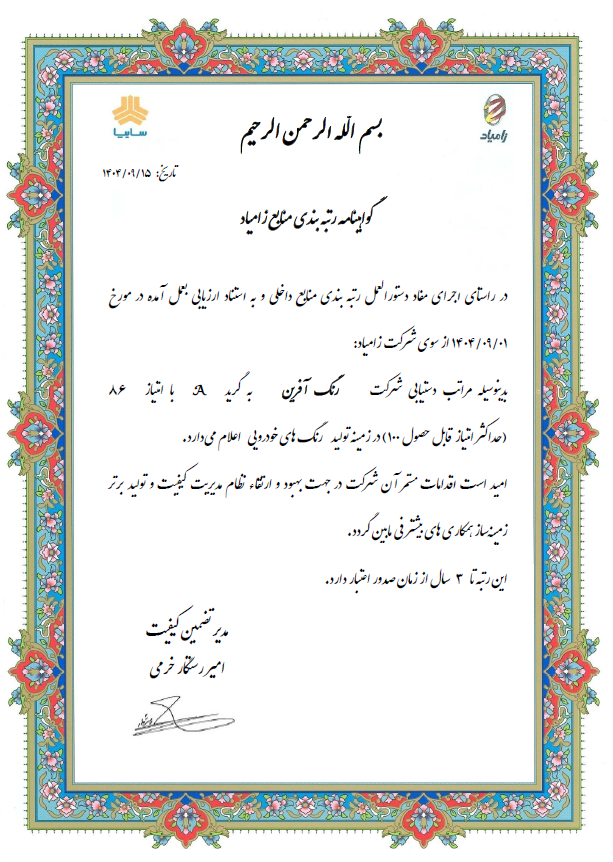 سایپا
زامیاد
بسم الله الرحمن الرحیم
تاریخ: ۱۴۰۴/۰۹/۱۵
گواهینامه رتبه بندی منابع زامیاد
در راستای اجرای مفاد دستورالعمل رتبه بندی منابع داخلی و به استناد ارزیابی بعمل آمده در مورخ
۱۴۰۴/۰۹/۰۱ از سوی شرکت زامیاد:
بدینوسیله مراتب دستیابی شرکت رنگ آفرین به گرید A با امتیاز ۸۶
(حداکثر امتیاز قابل حصول ۱۰۰) در زمینه تولید رنگ های خودرویی اعلام می‌دارد.
امید است اقدامات مستمر آن شرکت در جهت بهبود و ارتقاء نظام مدیریت کیفیت و تولید برتر
زمینه‌ساز همکاری های بیشتر فی مابین گردد.
این رتبه تا ۳ سال از زمان صدور اعتبار دارد.
مدیر تضمین کیفیت
امیر رستگار خرمی